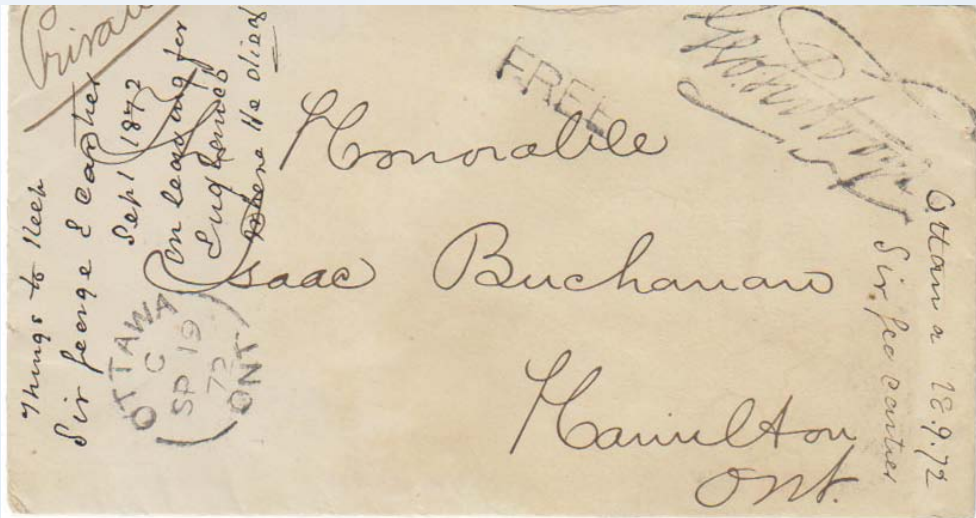 Private
Things to Keep
Sir George E Cartier
Sept 1872
on leaving for
England
where He died
FREE
Honorable
Isaac Buchanan
Hamilton
Ont.
OTTAWA
C
SP 19
72
ONT
Ottawa 18.9.72
Sir. Geo cartier